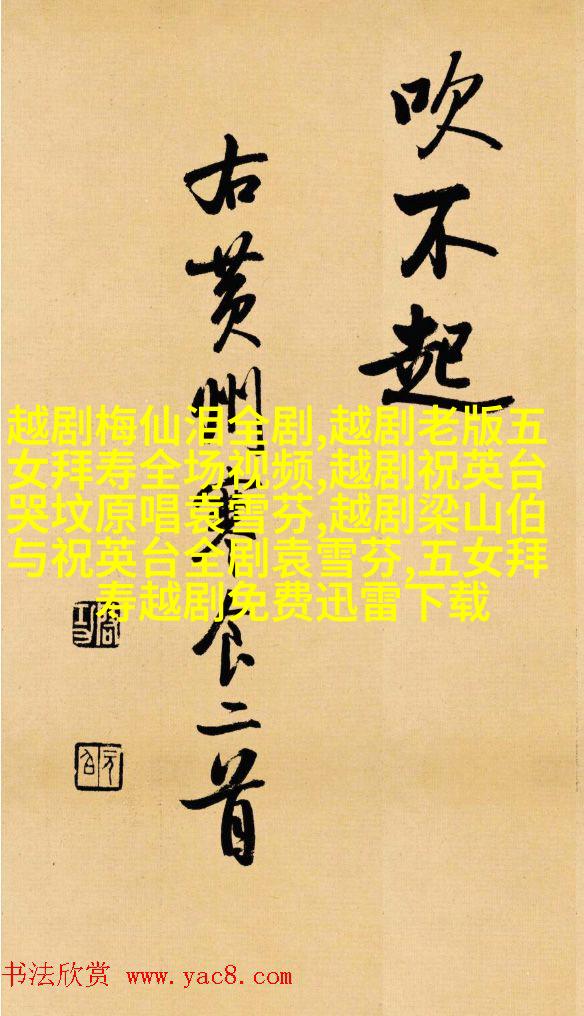 吹不起
右黄州寒食二首
越剧梅仙泪全剧,越剧老版五
女拜寿全场视频,越剧祝英台
哭坟原唱袁雪芬,越剧梁山伯
与祝英台全剧袁雪芬,五女拜
寿越剧免费迅雷下载
书法欣赏 www.yac8.com